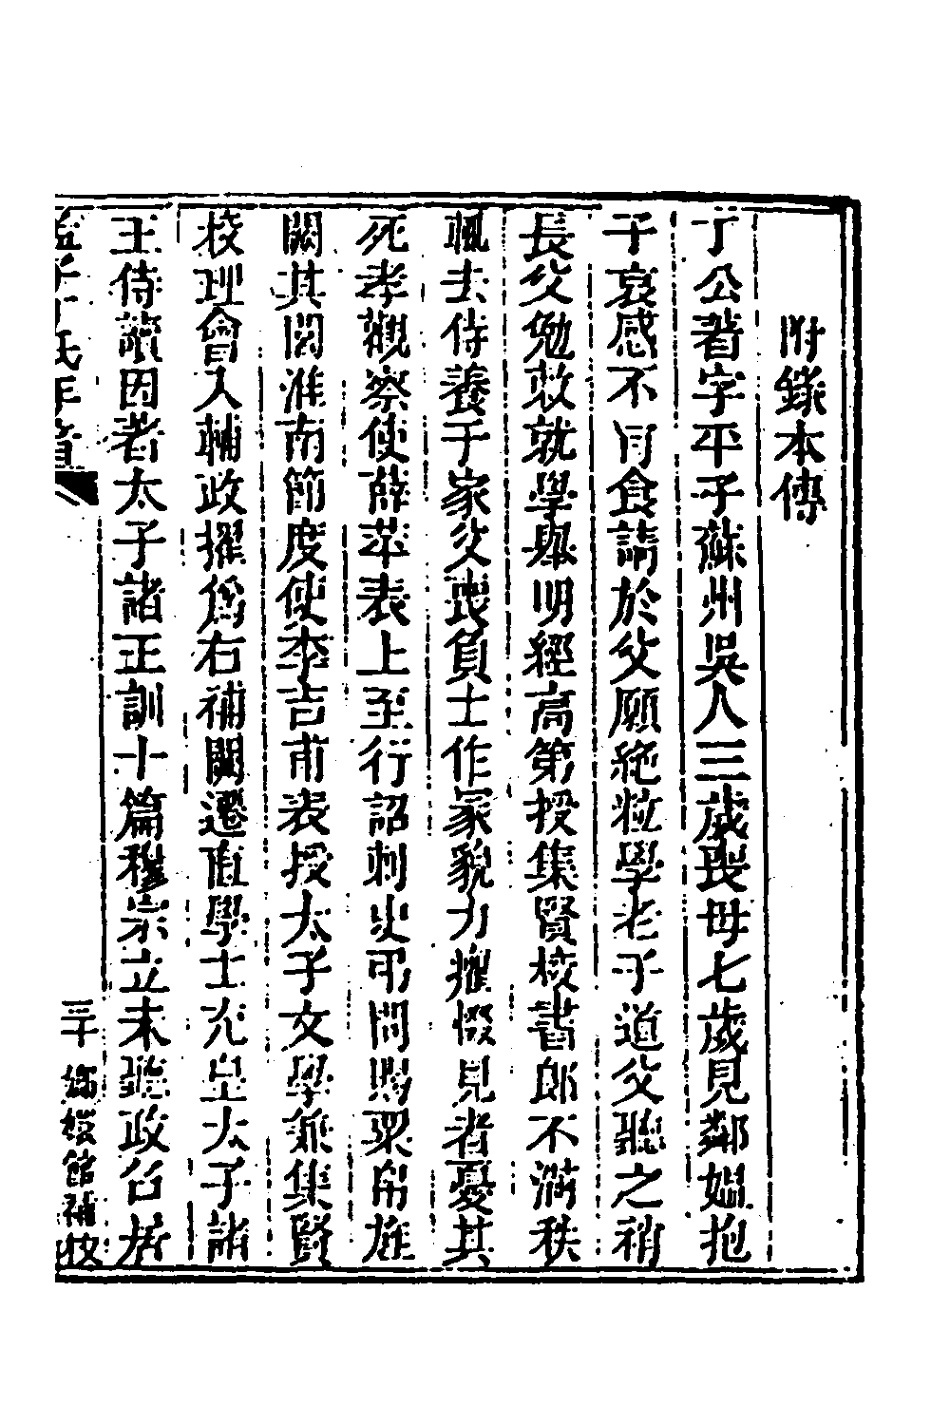 附錄本傳
丁公著字平子蘇州吳人三歲喪母七歲見鄰媼抱
子哀感不肯食請於父願絶粒學老子道父聽之稍
長父勉敕就學舉明經高第授集賢校書郎不滿秩
輒去侍養于家父喪負土作冢貌力癯惙見者憂其
死孝觀察使薛苹表上至行詔刺史弔問賜粟帛旌
闕其閭淮南節度使李吉甫表授太子文學兼集賢
校理會入輔政擢爲右補闕遷直學士充皇太子諸
王侍讀因著太子諸王訓十篇穆宗立未聽政召居
孟子丁氏手音
三十 嫏嬛館補校